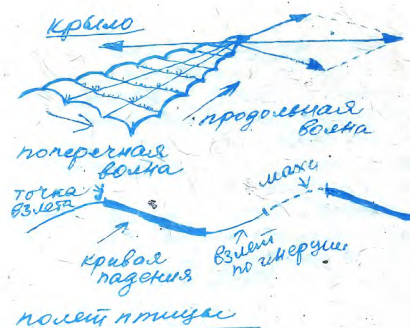 крыло
продольная
волна
поперечная
волна
точка
взлета
махи
кривая
падения
взлет
по инерции
полет птицы